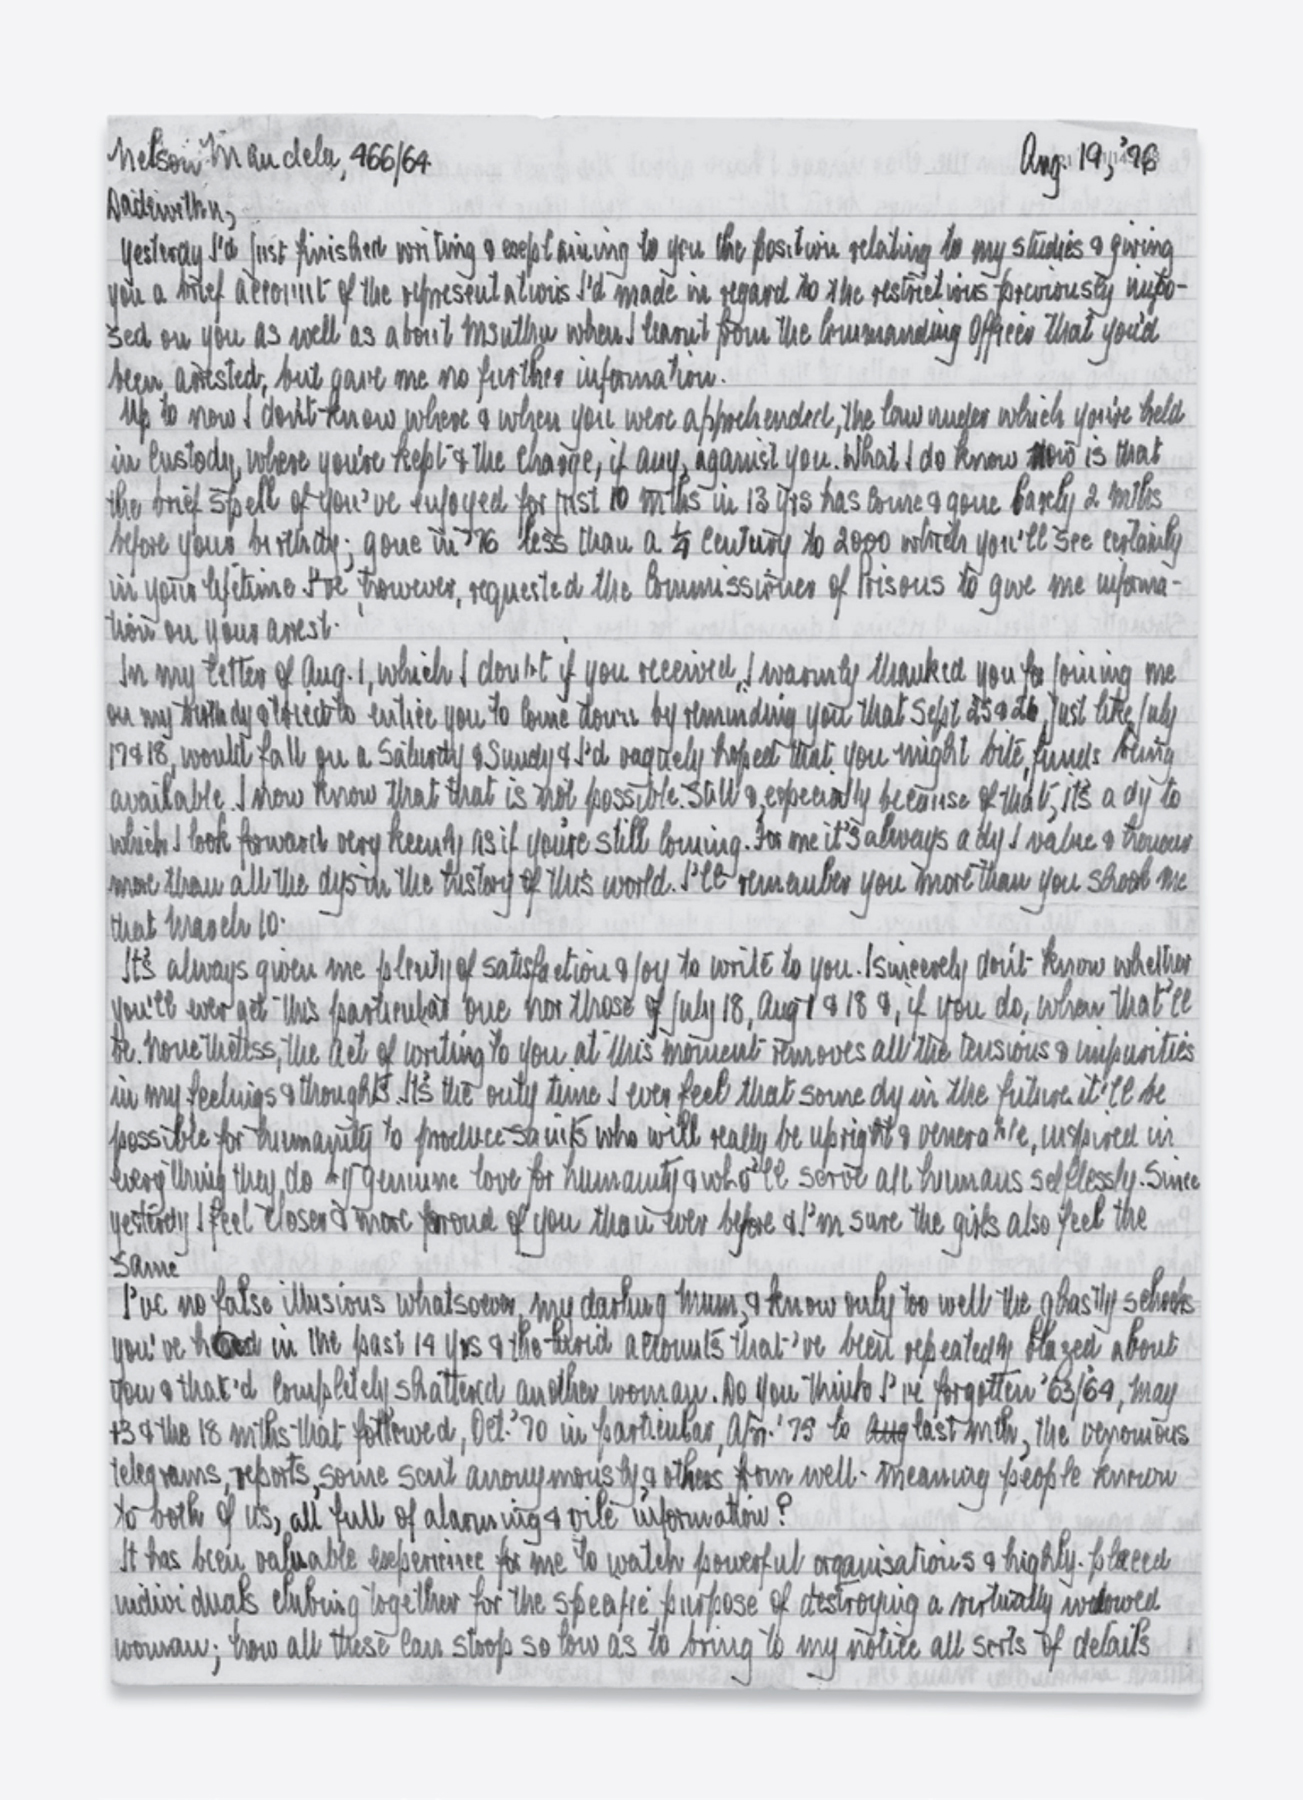 Nelson Mandela, 466/64 Aug 19, '76
Dadewethu,
Yesterday I'd just finished writing & explaining to you the position relating to my studies & giving
you a brief account of the representations I'd made in regard to the restrictions previously impo-
sed on you as well as about Msuthu when I learnt from the Commanding Officer that you'd
been arrested; but gave me no further information.
Up to now I don't know where & when you were apprehended, the law under which you're held
in custody, where you're kept & the charge, if any, against you. What I do know now is that
the brief spell of you've enjoyed for just 10 mths in 13 yrs has come & gone barely 2 mths
before your birthdy; gone in '76 less than a ¼ century to 2000 which you'll see certainly
in your lifetime. I've, however, requested the Commissioner of Prisons to give me informa-
tion on your arrest.
In my letter of Aug. 1, which I doubt if you received, I warmly thanked you for joining me
on my birthdy & tried to entice you to come down by reminding you that Sept 25 & 26, just like July
17 & 18, would fall on a Saturdy & Sundy & I'd vaguely hoped that you might bite, funds being
available. I now know that that is not possible. Still &, especially because of that, it's a dy to
which I look forward very keenly as if you're still coming. For me it's always a dy I value & honour
more than all the dys in the history of this world. I'll remember you more than you shook me
that March 10.
It's always given me plenty of satisfaction & joy to write to you. I sincerely don't know whether
you'll ever get this particular one nor those of July 18, Aug 1 & 18 &, if you do, when that'll
be. Nonetheless, the act of writing to you at this moment removes all the tensions & impurities
in my feelings & thoughts. It's the only time I ever feel that some dy in the future it'll be
possible for humanity to produce saints who will really be upright & venerable, inspired in
everything they do by genuine love for humanity & who'll serve all humans selflessly. Since
yesterdy I feel closer & more proud of you than ever before & I'm sure the girls also feel the
same
I've no false illusions whatsoever, my darling Mum, & know only too well the ghastly schocks
you've had in the past 14 yrs & the lurid accounts that've been repeatedly blazed about
you & that'd completely shattered another woman. Do you think I've forgotten '63/64, May
& the 18 mths that followed, Oct. '70 in particular, Apr. '75 to Aug last mth, the venomous
telegrams, reports, some sent anonymously & others from well-meaning people known
to both of us, all full of alarming & vile information?
It has been valuable experience for me to watch powerful organisations & highly-placed
individuals clubing together for the specific purpose of destroying a virtually widowed
woman; how all these can stoop so low as to bring to my notice all sorts of details